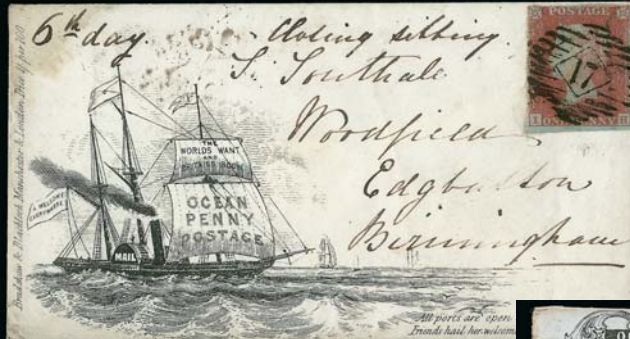 6th day. Closing sitting.
S. Southall
Woodfield
Edgbaston
Birmingham
POSTAGE
17
ONE PENNY
Bradshaw & Blacklock Manchester & London
THE
WORLDS WANT
AND
BRITAIN'S BOON
OCEAN
PENNY
POSTAGE
A WELCOME
EVERYWHERE
MAIL
All ports are open
Friends hail her welcom